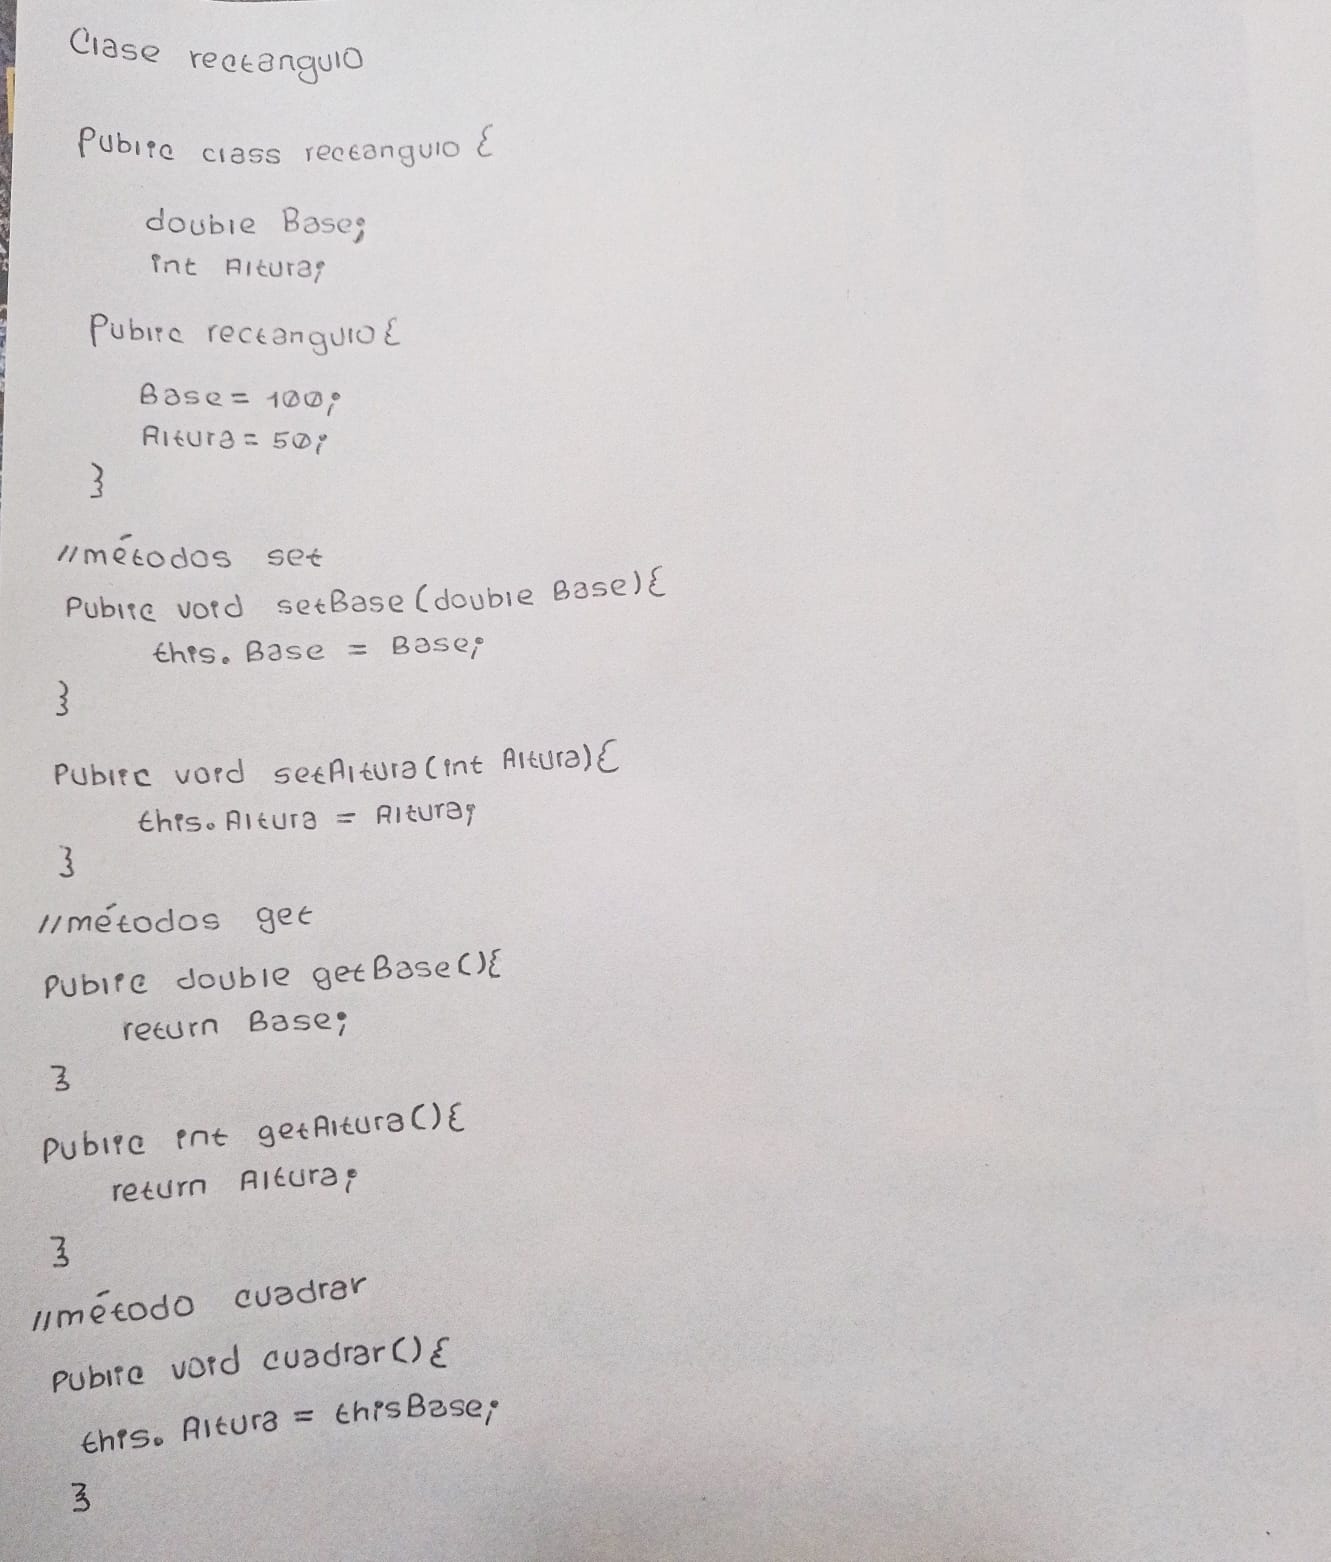 Clase rectangulo
Public class rectangulo {
double Base;
int Altura;
Public rectangulo {
Base = 100;
Altura = 50;
}
//métodos set
Public void setBase (double Base) {
this. Base = Base;
}
Public void setAltura (int Altura) {
this. Altura = Altura;
}
//métodos get
Public double getBase () {
return Base;
}
Public int getAltura () {
return Altura;
}
//método cuadrar
Public void cuadrar () {
this. Altura = thisBase;
}